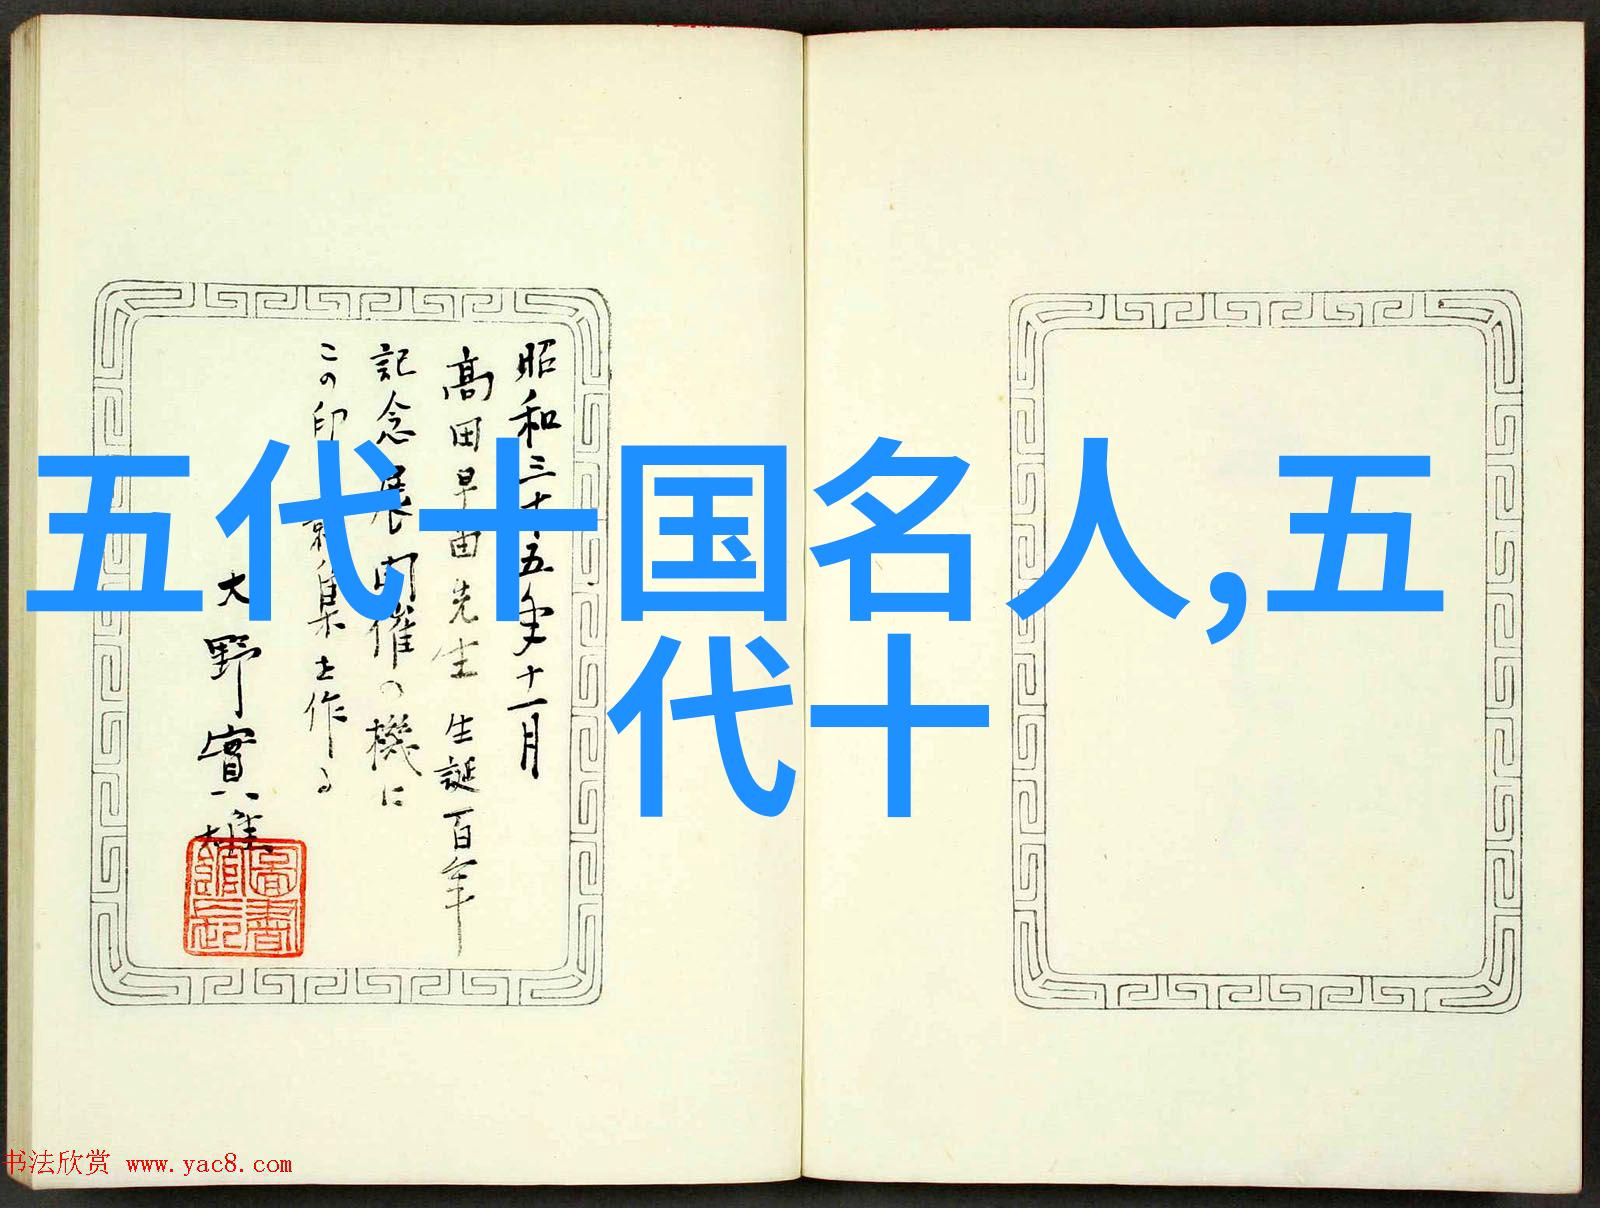 五代十国名人,五
代十
昭和三十五年十一月
高田早苗先生 生誕百年
記念展開催の機に
この印譜集を作る
大野實雄
圖書
館長
书法欣赏 www.yac8.com